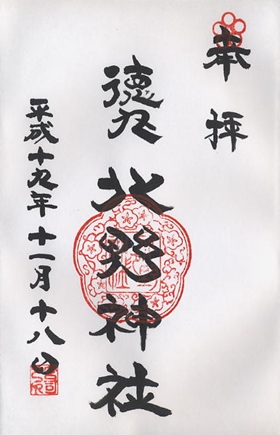 奉拝
徳丸
北野神社
平成十九年十一月十八日